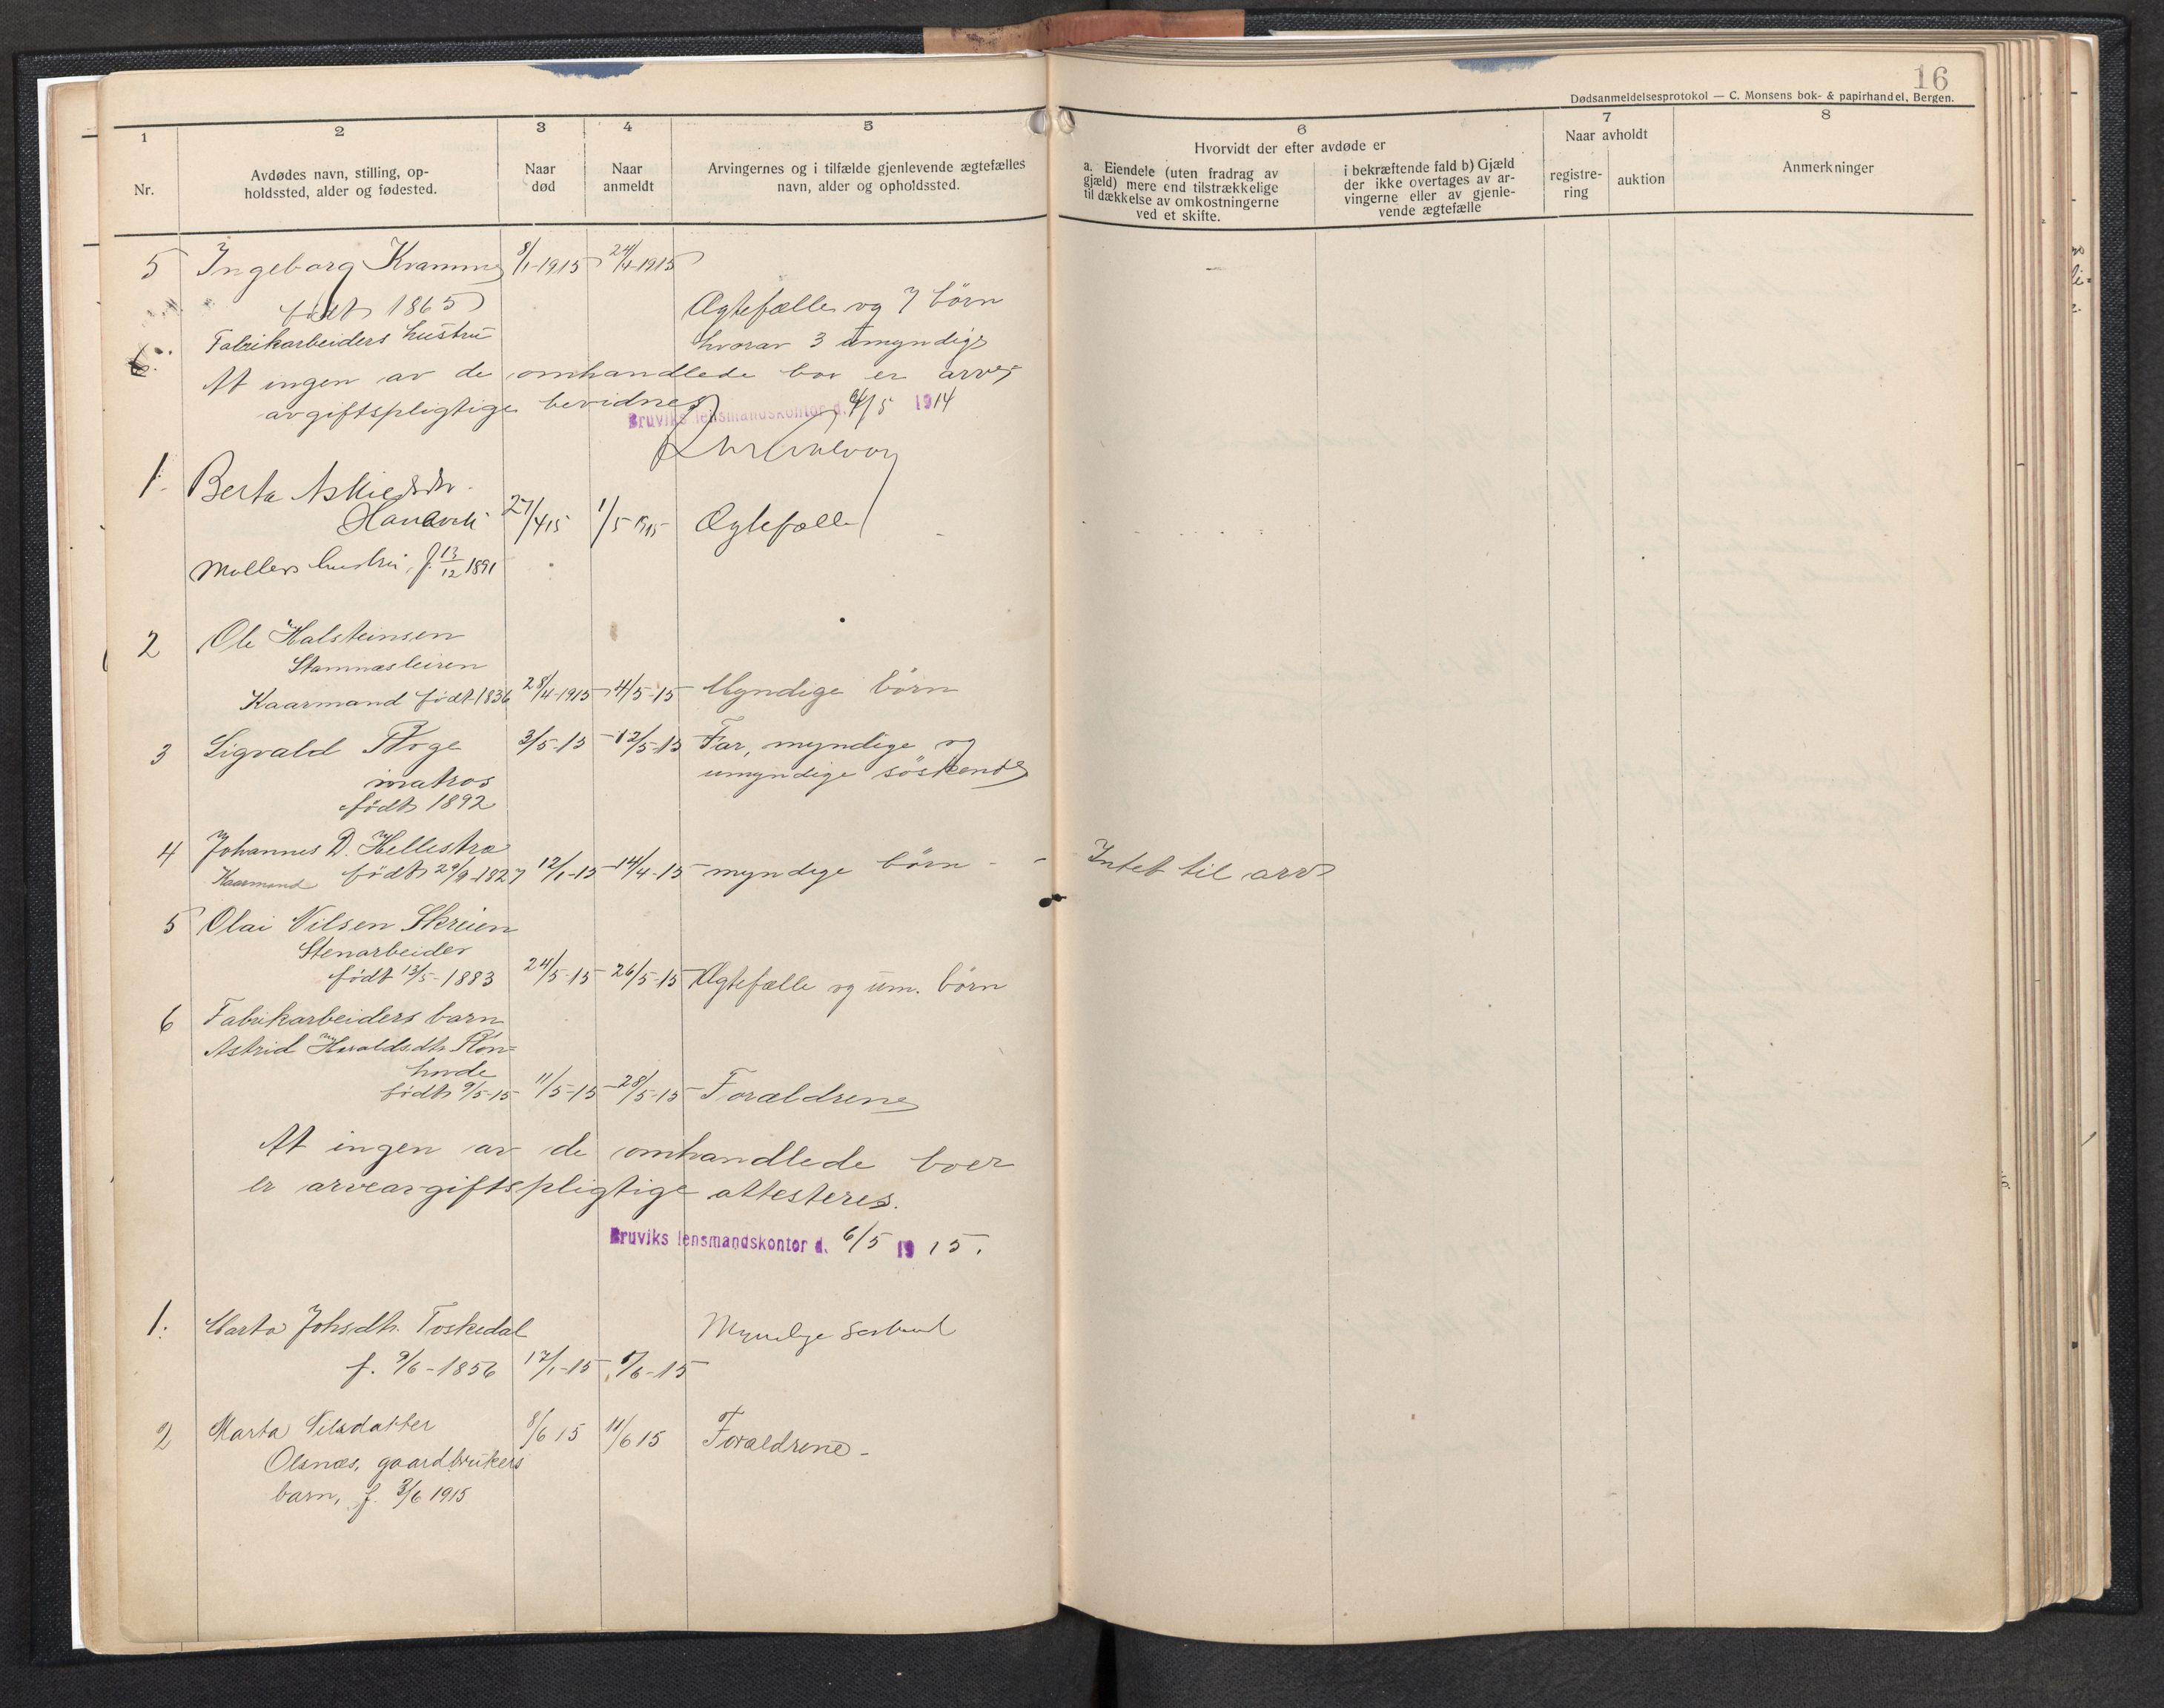 16
Dødsanmeldelsesprotokol — C. Monsens bok- & papirhandel, Bergen.
1 2 3 4 5 6 7 8
Nr.
Avdødes navn, stilling, op-
holdssted, alder og fødested.
Naar
død
Naar
anmeldt
Arvingernes og i tilfælde gjenlevende ægtefælles
navn, alder og opholdssted.
Hvorvidt der efter avdøde er
a. Eiendele (uten fradrag av
gjæld) mere end tilstrækkelige
til dækkelse av omkostningerne
ved et skifte.
i bekræftende fald b) Gjæld
der ikke overtages av ar-
vingerne eller av gjenle-
vende ægtefælle
Naar avholdt
registre-
ring
auktion
Anmerkninger
5 Ingeborg Kramme 8/1-1915 24/4-1915
født 1865 Ægtefælle og 7 børn
Fabrikarbeiders hustru hvorav 3 umyndige
At ingen av de omhandlede bor er arve-
avgiftspligtige bevidnes
Bruviks lensmandskontor d. 4/5 1914
1. Berta
27/4 15 1/5 1915 Ægtefælle
Møllers hustru, f. 13/12 1891
2 Ole Halsteinsen
Stamnæsleiren
Kaarmand født 1836 28/4-1915 4/5-15 Myndige børn
3 Sigvald Boge 3/5-15 12/5-15 Far, myndige og
umyndige søskende
matros
født 1892
4 Johannes D. Hellestræ
Kaarmand født 29/9-1827 12/1-15 14/4-15 myndige børn - - Intet til arv
5 Olai Nilsen Skreien
Stenarbeider
født 13/5-1883 24/5-15 26/5-15 Ægtefælle og um. børn
6 Fabrikarbeiders barn
Astrid Haraldsdtr. Røn-
hovde
født 9/5-15 11/5-15 28/5-15 Forældrene
At ingen av de omhandlede boer
er arveavgiftspligtige attesteres.
Bruviks lensmandskontor d. 6/5 1915.
1. Marta Johsdtr. Toskedal Myndige
f. 9/6-1856 17/1-15 /6-15
2 Marta Nilsdatter 8/6 15 11/6 15 Forældrene -
Olsnæs, gaardbrukers
barn, f. 3/6 1915